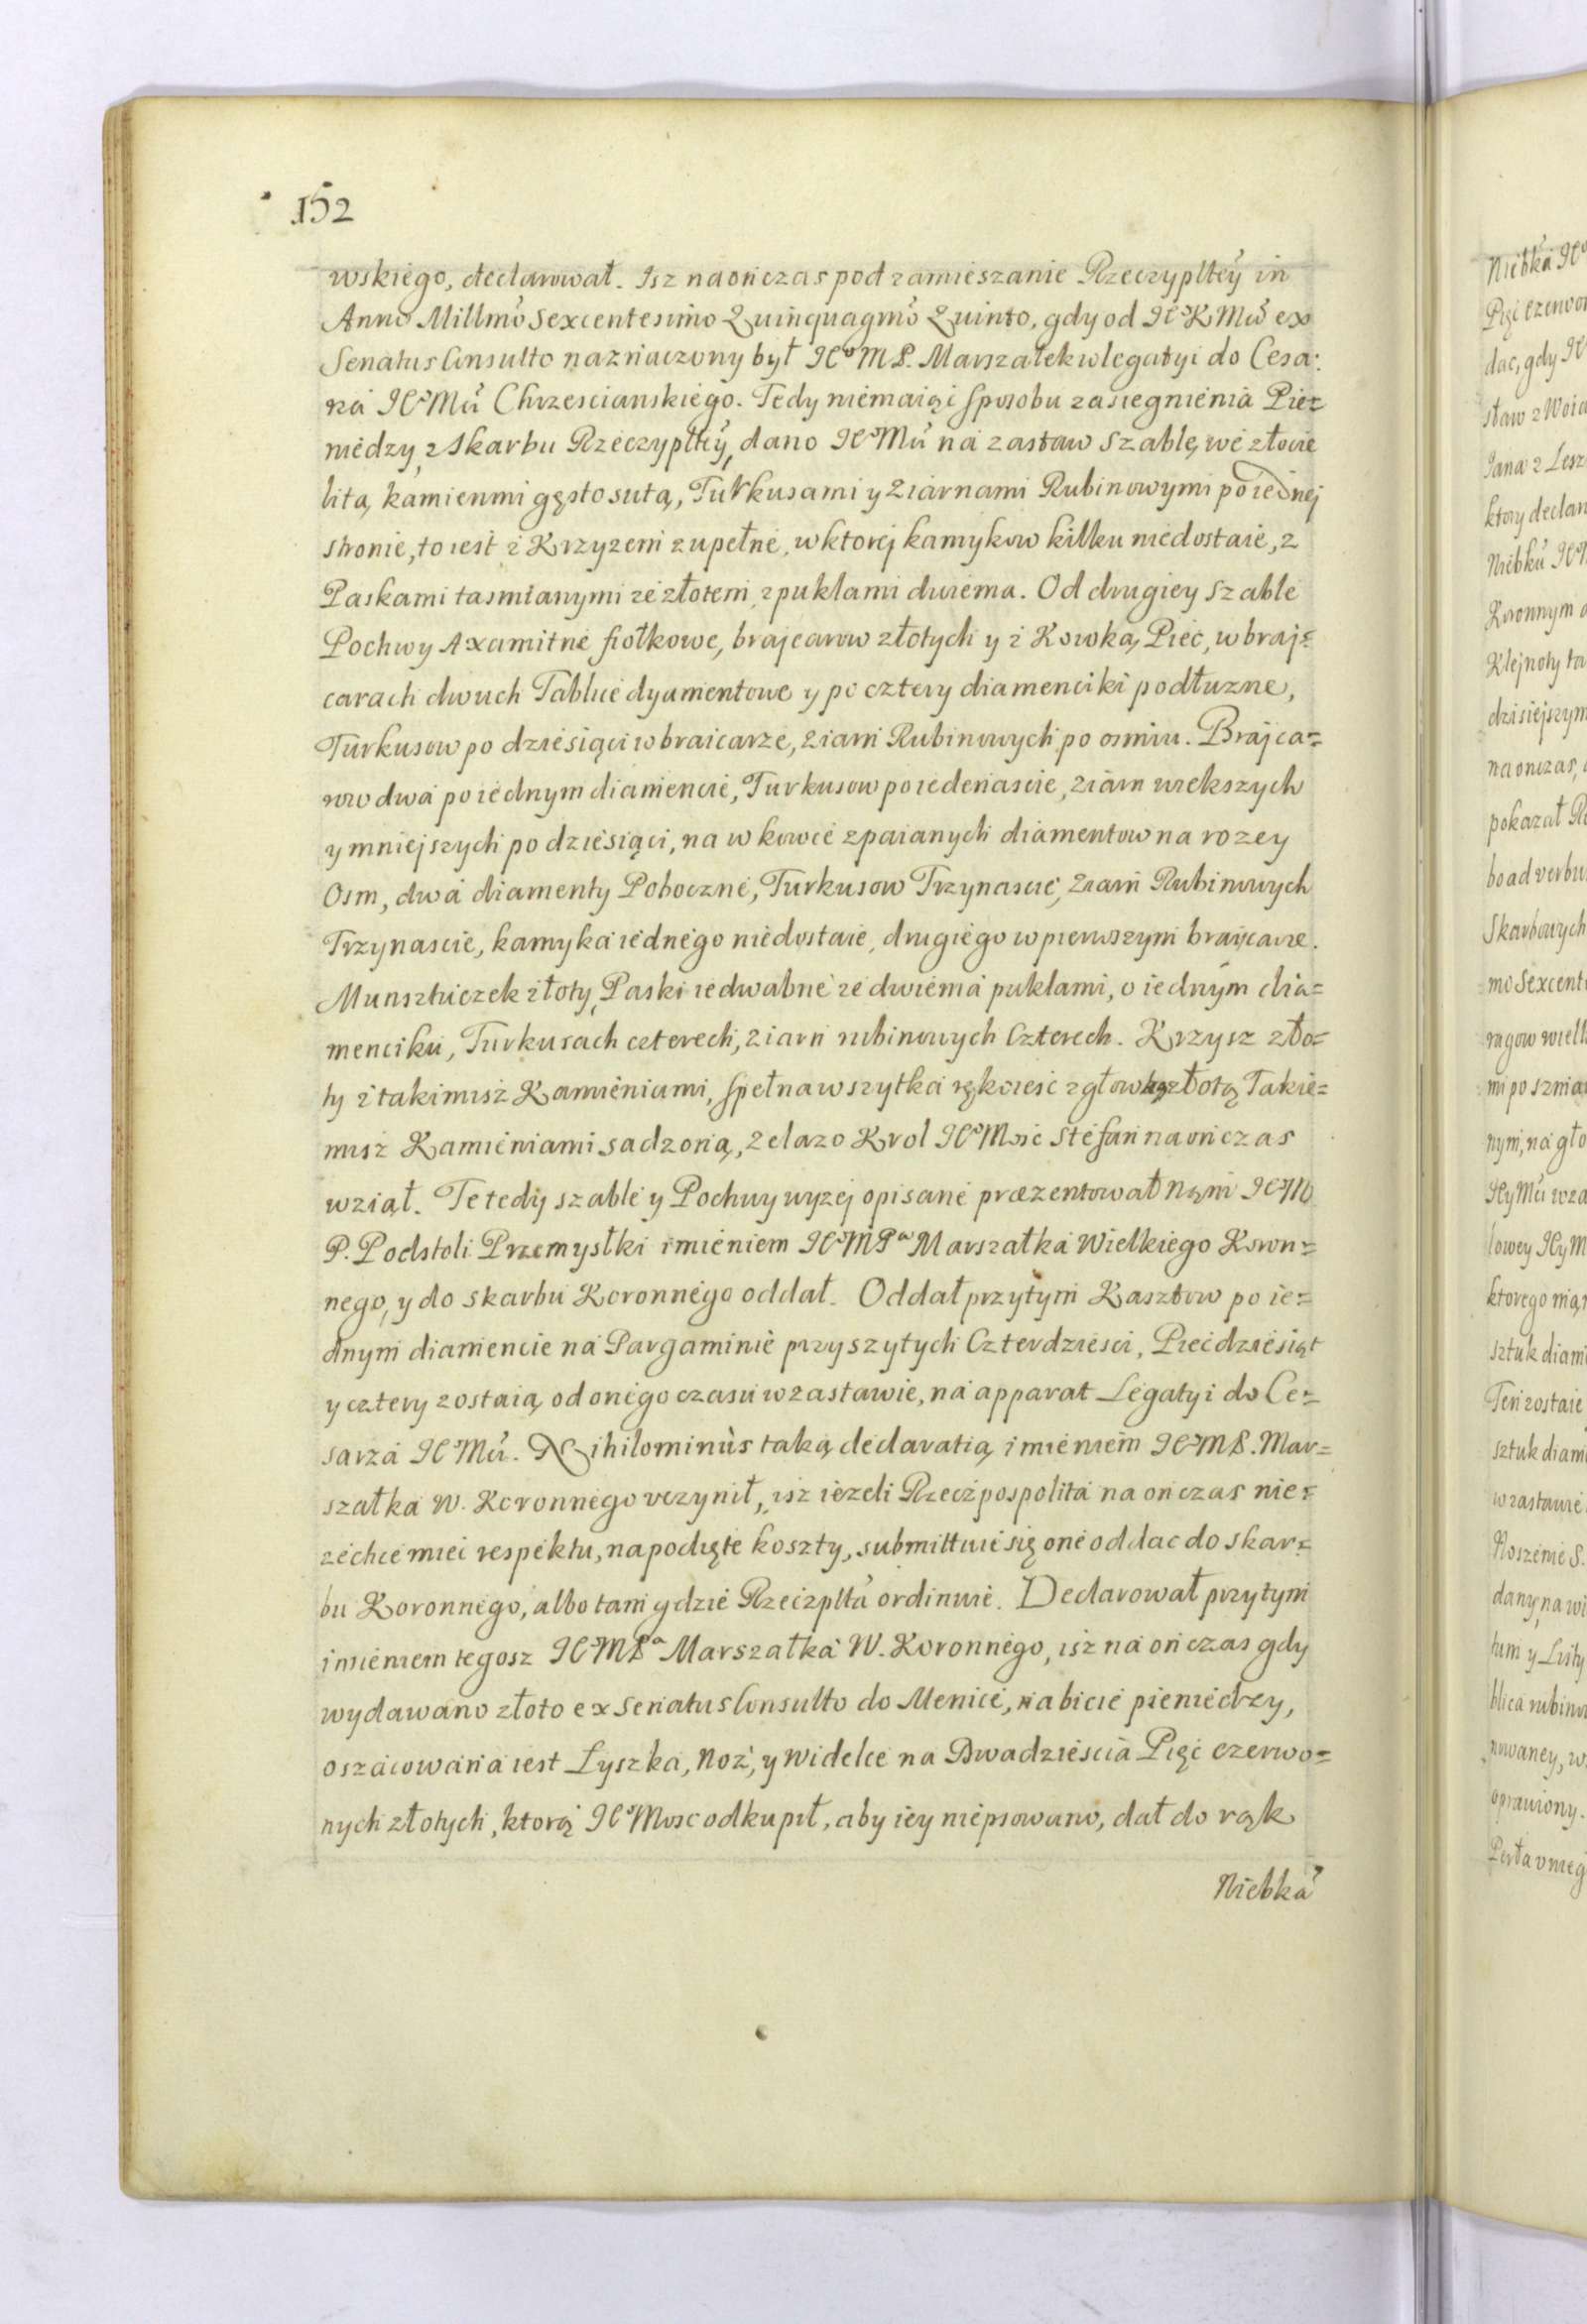 152
wskiego, declarował. Isz naonczas pod zamieszanie Rzeczypltey in
Anno Millmo Sexcentesimo Quinquagmo Quinto, gdy od IeoKMci ex
Senatus Consulto naznaczony był IeoMP. Marszałek w legatyi do Cesa:
rza IeoMci Chrzescianskiego. Tedy niemaiąc sposobu zasiegnienia Pie=
niedzy, z Skarbu Rzeczypltey, dano IeoMci na zastaw Szablę, we złocie
litą, kamienmi gęsto sutą, Turkusami y Ziarnami Rubinowymi po iednej
stronie, to iest i Krzyzem zupełne, w ktorej kamykow kilku niedostaie, z
Paskami tasmianymi ze złotem, z puklami dwiema. Od drugiey Szable
Pochwy Axamitne fiołkowe, brajcarow złotych y z Kowką, Pieć, w braj=
carach dwuch Tablice dyamentowe y po cztery diamenciki podłuzne,
Turkusow po dziesiąci w braicarze, ziarn Rubinowych po osmiu. Brajca=
row dwa po iednym diamencie, Turkusow po iedenascie, ziarn wiekszych
y mniejszych po dziesiąci, na w kowce zpaianych diamentow na rozey
Osm, dwa diamenty Poboczne, Turkusow Trzynascie, Ziarn Rubinowych
Trzynascie, kamyka iednego niedostaie, drugiego w pierwszym braycarze.
Munsztuczek złoty, Paski iedwabne ze dwiema puklami, o iednym dia=
menciku, Turkusach czterech, ziarn rubinowych Czterech. Krzysz zło=
ty z takimisz Kamieniami, spełna wszytka rękoieść z głowką złotą Takie=
misz Kamieniami sadzoną, zelazo Krol IeoMość Stefan naonczas
wziął. Te tedy szable y Pochwy wyzej opisane præzentował Nam IeoM
P. Podstoli Przemyslki imieniem IeoMPa Marszałka Wielkiego Koron=
nego, y do skarbu Koronnego oddał. Oddał przytym Kasztow po ie=
dnym diamencie na Pargaminie przyszytych Czterdziesci, Piećdziesiąt
y cztery zostaią od onego czasu w zastawie, na apparat Legatyi do Ce=
sarza IeoMci. Nihilominus taką declaratią imieniem IeoMP. Mar=
szałka W. Koronnego vczynił, isz iezeli Rzeczpospolita na onczas nie=
zechce miec respektu, na podięte koszty, submittuie się one oddac do skar=
bu Koronnego, albo tam gdzie Rzeczplta ordinuie. Declarował przytym
imieniem tegosz IeoMPa Marszałka W. Koronnego, isz na onczas gdy
wydawano złoto ex Senatus Consulto do Menice, na bicie pieniedzy,
oszacowana iest Lyszka, Noz, y Widelce na Dwadziescia Pięc czerwo=
nych złotych, ktorą IeoMosc odkupił, aby iey niepsowano, dał do rąk
Niebka